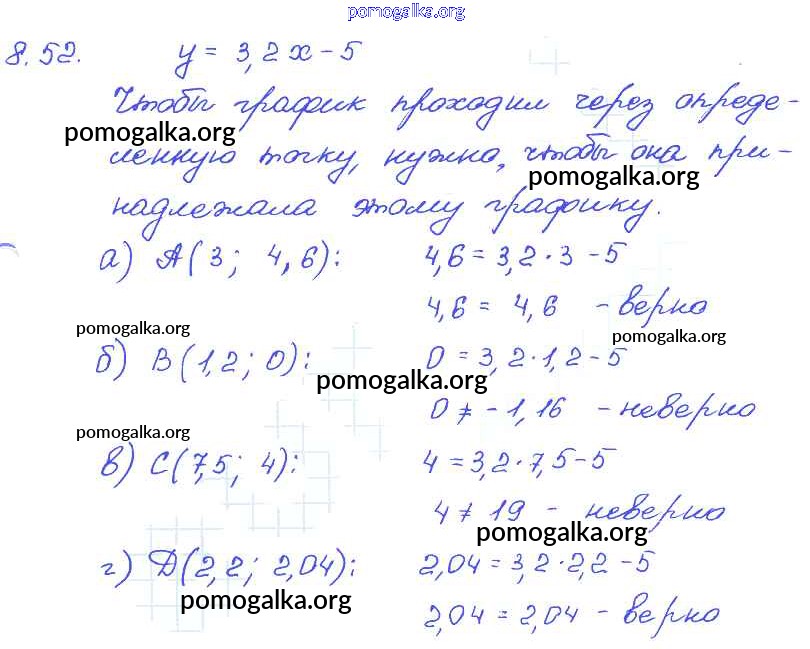 pomogalka.org
8.52. y = 3,2x - 5
Чтобы график проходил через опреде-
pomogalka.org
ленную точку, нужно, чтобы она при-
pomogalka.org
надлежала этому графику.
а) A(3; 4,6): 4,6 = 3,2 · 3 - 5
4,6 = 4,6 - верно
pomogalka.org pomogalka.org
б) B(1,2; 0): 0 = 3,2 · 1,2 - 5
pomogalka.org
0 ≠ -1,16 - неверно
pomogalka.org
в) C(7,5; 4): 4 = 3,2 · 7,5 - 5
4 ≠ 19 - неверно
pomogalka.org
г) D(2,2; 2,04): 2,04 = 3,2 · 2,2 - 5
pomogalka.org
2,04 = 2,04 - верно